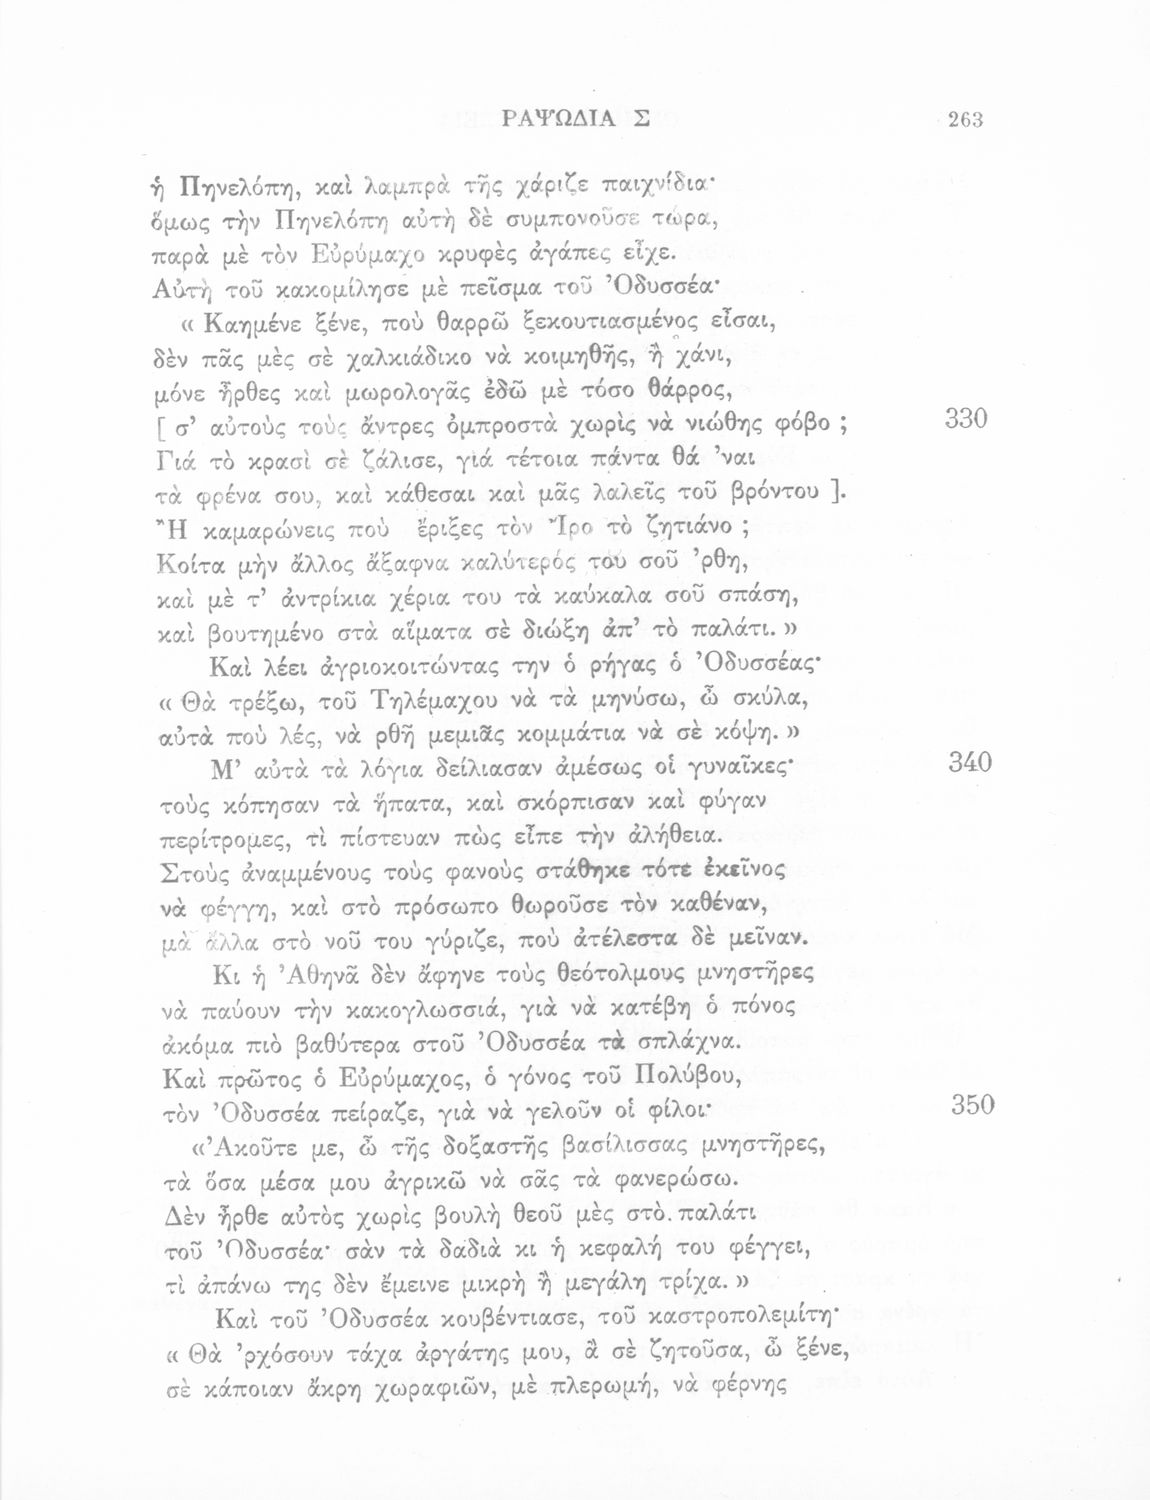 ΡΑΨΩΔΙΑ Σ 263
ἡ Πηνελόπη, καὶ λαμπρὰ τῆς χάριζε παιχνίδια·
ὅμως τὴν Πηνελόπη αὐτὴ δὲ συμπονοῦσε τώρα,
παρὰ μὲ τὸν Εὐρύμαχο κρυφὲς ἀγάπες εἶχε.
Αὐτὴ τοῦ κακομίλησε μὲ πεῖσμα τοῦ Ὀδυσσέα·
« Καημένε ξένε, ποὺ θαρρῶ ξεκουτιασμένος εἶσαι,
δὲν πᾶς μὲς σὲ χαλκιάδικο νὰ κοιμηθῆς, ἢ χάνι,
μόνε ἦρθες καὶ μωρολογᾶς ἐδῶ μὲ τόσο θάρρος,
[ σ’ αὐτοὺς τοὺς ἄντρες ὀμπροστὰ χωρὶς νὰ νιώθης φόβο ; 330
Γιά τὸ κρασὶ σὲ ζάλισε, γιά τέτοια πάντα θά ’ναι
τὰ φρένα σου, καὶ κάθεσαι καὶ μᾶς λαλεῖς τοῦ βρόντου ].
Ἢ καμαρώνεις ποὺ ἔριξες τὸν Ἴρο τὸ ζητιάνο ;
Κοίτα μὴν ἄλλος ἄξαφνα καλύτερός του σοῦ ’ρθη,
καὶ μὲ τ’ ἀντρίκια χέρια του τὰ καύκαλα σοῦ σπάση,
καὶ βουτημένο στὰ αἵματα σὲ διώξη ἀπ’ τὸ παλάτι. »
Καὶ λέει ἀγριοκοιτώντας την ὁ ρήγας ὁ Ὀδυσσέας·
« Θὰ τρέξω, τοῦ Τηλέμαχου νὰ τὰ μηνύσω, ὦ σκύλα,
αὐτὰ ποὺ λές, νὰ ρθῆ μεμιᾶς κομμάτια νὰ σὲ κόψη. »
Μ’ αὐτὰ τὰ λόγια δείλιασαν ἀμέσως οἱ γυναῖκες· 340
τοὺς κόπησαν τὰ ἥπατα, καὶ σκόρπισαν καὶ φύγαν
περίτρομες, τὶ πίστευαν πὼς εἶπε τὴν ἀλήθεια.
Στοὺς ἀναμμένους τοὺς φανοὺς στάθηκε τότε ἐκεῖνος
νὰ φέγγη, καὶ στὸ πρόσωπο θωροῦσε τὸν καθέναν,
μὰ ἄλλα στὸ νοῦ του γύριζε, ποὺ ἀτέλεστα δὲ μεῖναν.
Κι ἡ Ἀθηνᾶ δὲν ἄφηνε τοὺς θεότολμους μνηστῆρες
νὰ παύουν τὴν κακογλωσσιά, γιὰ νὰ κατέβη ὁ πόνος
ἀκόμα πιὸ βαθύτερα στοῦ Ὀδυσσέα τὰ σπλάχνα.
Καὶ πρῶτος ὁ Εὐρύμαχος, ὁ γόνος τοῦ Πολύβου,
τὸν Ὀδυσσέα πείραζε, γιὰ νὰ γελοῦν οἱ φίλοι· 350
«Ἀκοῦτε με, ὦ τῆς δοξαστῆς βασίλισσας μνηστῆρες,
τὰ ὅσα μέσα μου ἀγρικῶ νὰ σᾶς τὰ φανερώσω.
Δὲν ἦρθε αὐτὸς χωρὶς βουλὴ θεοῦ μὲς στὸ παλάτι
τοῦ Ὀδυσσέα· σὰν τὰ δαδιὰ κι ἡ κεφαλή του φέγγει,
τὶ ἀπάνω της δὲν ἔμεινε μικρὴ ἢ μεγάλη τρίχα. »
Καὶ τοῦ Ὀδυσσέα κουβέντιασε, τοῦ καστροπολεμίτη·
« Θὰ ’ρχόσουν τάχα ἀργάτης μου, ἂ σὲ ζητοῦσα, ὦ ξένε,
σὲ κάποιαν ἄκρη χωραφιῶν, μὲ πλερωμή, νὰ φέρνης